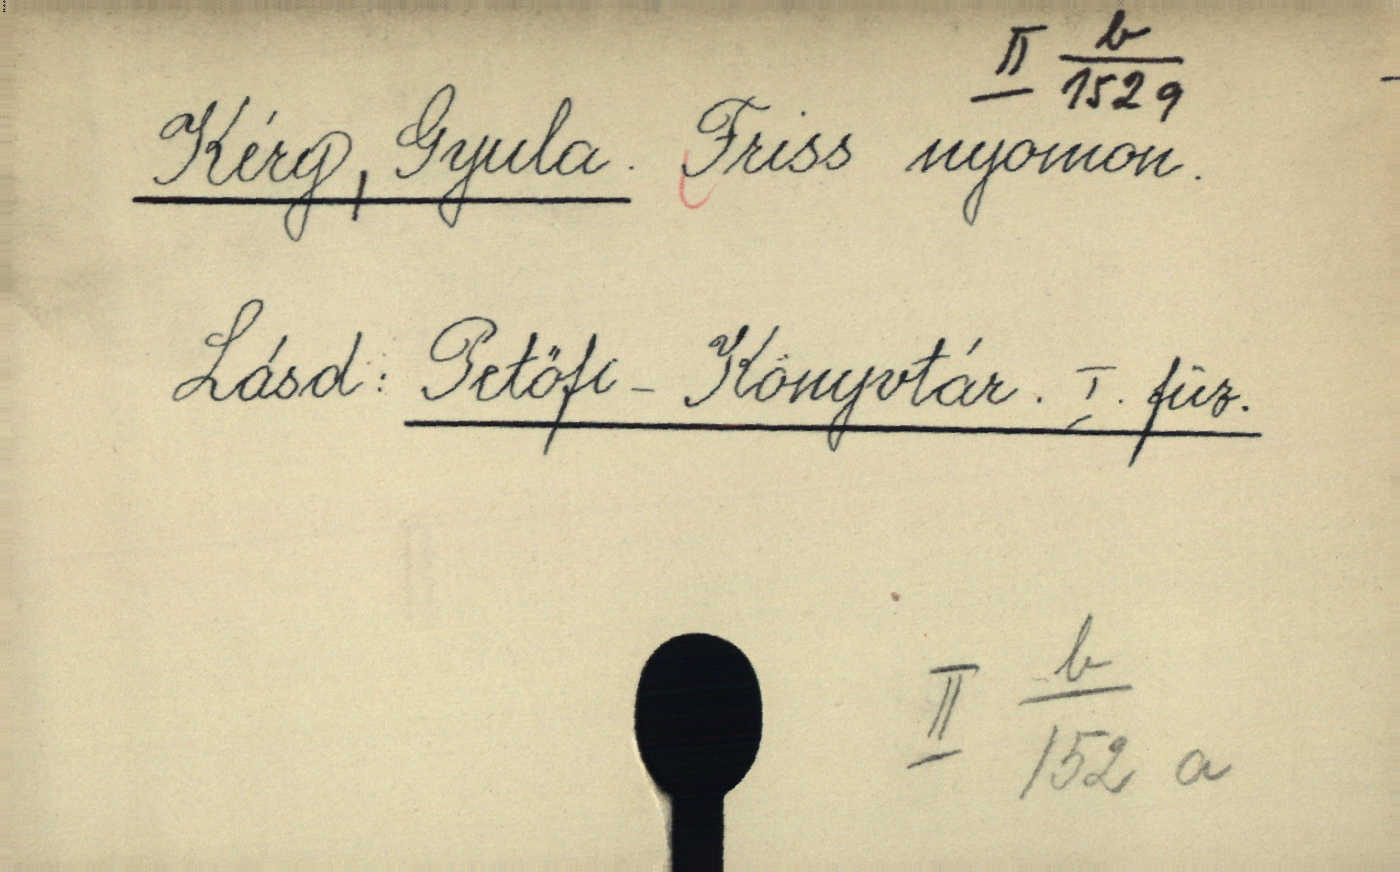 II b/1529
Kérg, Gyula. Friss nyomon.
Lásd: Petőfi-Könyvtár. I. füz.
II b/152 a